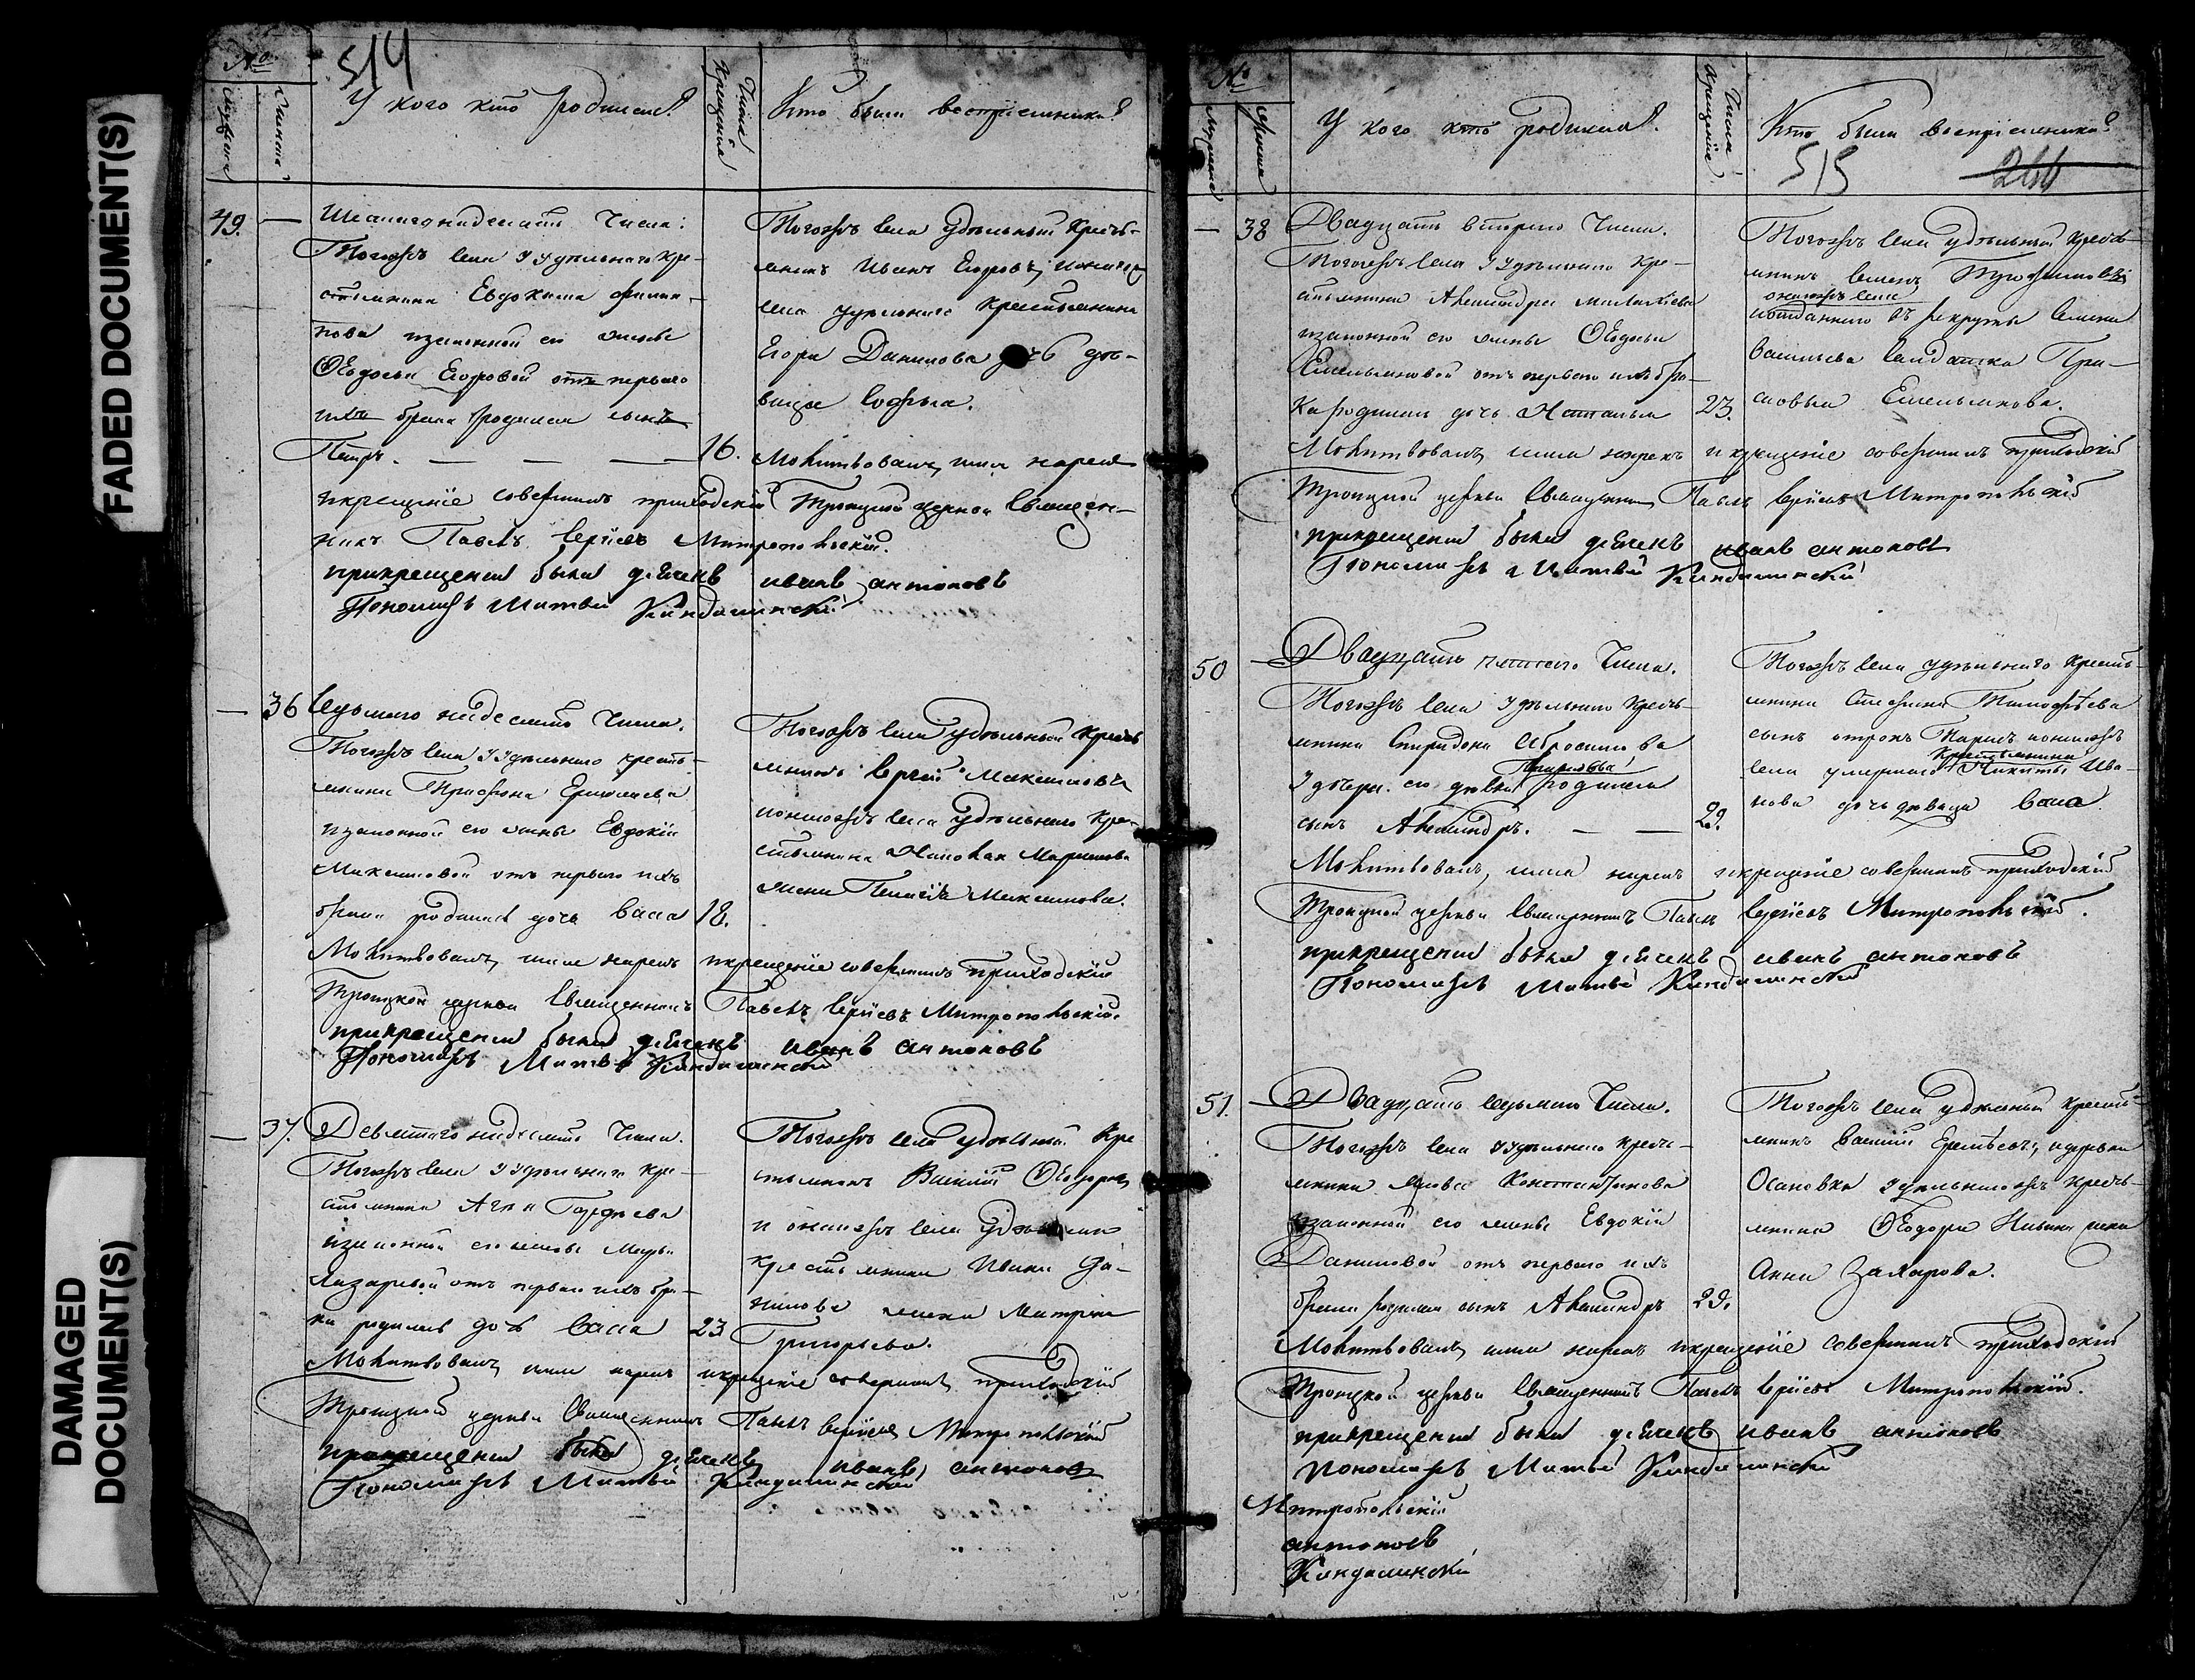 FADED DOCUMENT(S)
DAMAGED
DOCUMENT(S)
№
514
У кого кто родился?
Числа
Крещенія
Кто были воспріемники?
49.
Шестагонадесять Числа:
Тогожъ села Удѣльнаго Кре-
стьянина Евдокима
нова изаконной его жены
Ѳедосьи Егоровой отъ перваго
ихъ брака родился сынъ
Петръ.
16.
Тогожъ села Удѣльный Кресть-
янинъ Иванъ Егоровъ,
села удѣльнаго крестьянина
Егора Данилова дочь дѣ-
вица Софья.
Молитвовалъ, имя нарекъ
икрещеніе совершилъ приходскій Троицкой церкви Священ-
никъ Павелъ Сергіевъ Митропольскій.
прикрещеніи были дьячекъ иванъ антоновъ
Пономарь Матвей
36
Седьмаго надесять Числа.
Тогожъ села Удѣльнаго кресть-
янина Трифона
изаконной его жены Евдокіи
Максимовой отъ перваго ихъ
брака родилась дочь Васса
18.
Тогожъ села Удѣльный Кресть
янинъ Сергей Максимовъ
ионагожъ села Удѣльнаго Кре-
стьянина Маркелова
жена Пелагія Максимова.
Молитвовалъ, имя нарекъ икрещеніе совершилъ Приходскій
Троицкой церкви Священникъ Павелъ Сергіевъ Митропольскій.
прикрещеніи были дьячекъ иванъ антоновъ
Пономарь Матвей
37.
Девятагонадесять Числа.
Тогожъ села Удѣльнаго Кре-
стьянина Гордѣева
изаконной его жены Марьи
Лазаревой отъ перваго ихъ бра-
ка родилась дочь Васса
23
Тогожъ села удѣльный Кре
стьянинъ Василій Ѳедоровъ
и онагожъ села Удѣльнаго
крестьянина Ивана Да-
нилова жена Матрена
Григорьева.
Молитвовалъ, имя нарекъ икрещеніе совершилъ приходскій
Троицкой церкви Священникъ Павелъ Сергіевъ Митропольскій
прикрещеніи были дьячекъ иванъ антоновъ
Пономарь Матвей
№
У кого кто родился?
Числа
крещенія
Кто были воспріемники?
515
38
Двадцать втораго Числа.
Тогожъ села Удѣльнаго Кре-
стьянина Александра Малахіева
изаконной его жены Ѳедосьи
Емельяновой отъ перваго ихъ бра-
ка родилась дочь Наталья
23.
Тогожъ села удѣльный кресть-
янинъ Семенъ Трофимовъ
онагожъ села
иотданнаго въ рекруты Семена
Васильева салдатка Пра-
сковья Емельянова.
Молитвовалъ, имя нарекъ икрещеніе совершилъ приходскій
Троицкой церкви Священникъ Павелъ Сергіевъ Митропольскій
прикрещеніи были дьячекъ иванъ антоновъ
Пономарь Матвей
50
Двадцать пятаго Числа.
Тогожъ села Удѣльнаго Кресть-
янина Спиридона Абросимова
У дочери его дѣвки родился
сынъ Александръ.
29.
Тогожъ села удѣльнаго кресть-
янина Стефана Тимофѣева
сынъ отрокъ ионагожъ
крестьянина
села умершаго Никиты Ива-
нова дочь дѣвица Васса.
Молитвовалъ, имя нарекъ икрещеніе совершилъ приходскій
Троицкой церкви Священникъ Павелъ Сергіевъ Митропольскій.
прикрещеніи были дьячекъ иванъ антоновъ
Пономарь Матвей
51.
Двадцать седьмаго Числа.
Тогожъ села Удѣльнаго кресть-
янина Якова Константинова
изаконной его жены Евдокіи
Даниловой отъ перваго ихъ
брака родился сынъ Александръ
29.
Тогожъ села удѣльный кресть-
янинъ Василій Еремѣевъ, идеревни
Осановки Удѣльнагожъ кресть-
янина Ѳедора Ильина жена
Анна Захарова.
Молитвовалъ, имя нарекъ икрещеніе совершилъ приходскій
Троицкой церкви Священникъ Павелъ Сергіевъ Митропольскій.
прикрещеніи были дьячекъ иванъ антоновъ
Пономарь Матвей
Митропольскій
антоновъ